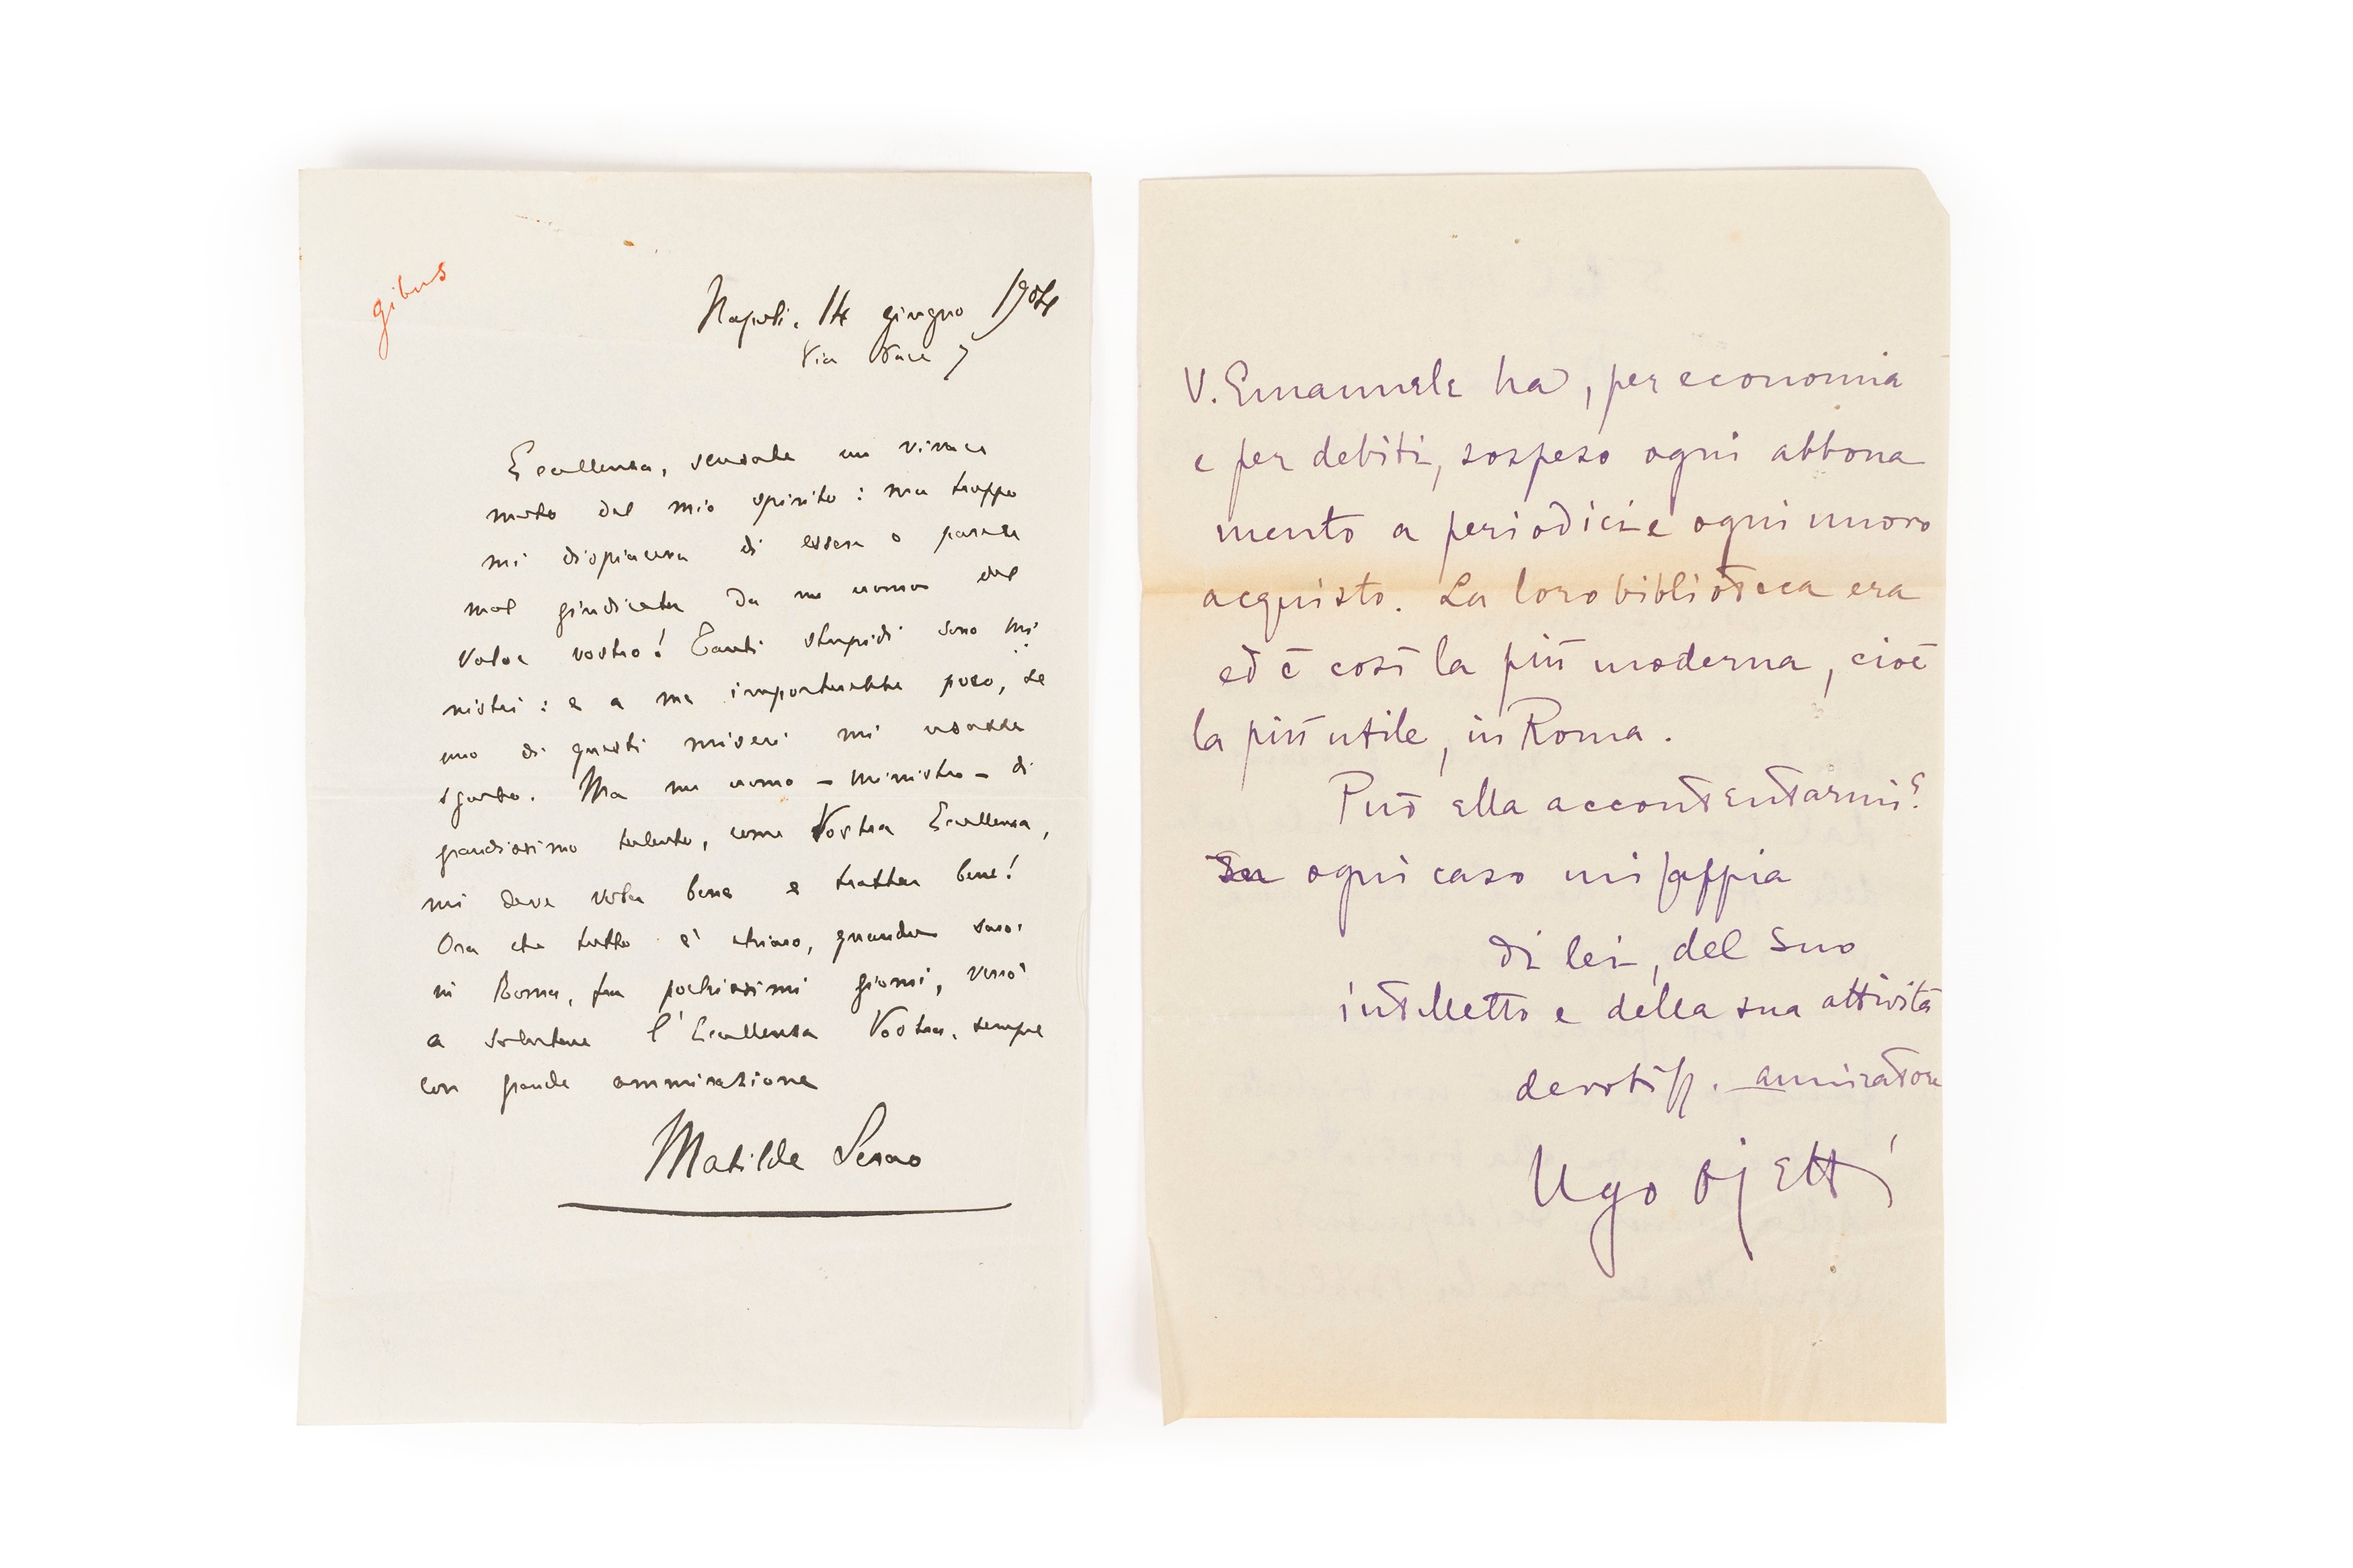 gibus
Napoli, 14 giugno 1904
Via Pace 7
Eccellenza, scusate un vivace
moto del mio spirito: ma troppo
mi dispiaceva di essere o parere
mal giudicata da un uomo del
valor vostro! Tanti stupidi sono mi
nistri: e a me importerebbe poco, se
uno di questi miseri mi usasse
sgarbo. Ma un uomo – ministro – di
grandissimo talento, come Vostra Eccellenza,
mi deve voler bene e trattar bene!
Ora che tutto è chiaro, quando sarò
in Roma, fra pochissimi giorni, verrò
a salutare l'Eccellenza Vostra, sempre
con grande ammirazione
Matilde Serao
V. Emanuele ha, per economia
e per debiti, sospeso ogni abbona
mento a periodici e ogni nuovo
acquisto. La loro biblioteca era
ed è così la più moderna, cioè
la più utile, in Roma.
Può ella accontentarmi?
In ogni caso mi sappia
di lei, del suo
intelletto e della sua attività
devotiss. ammiratore
Ugo Ojetti